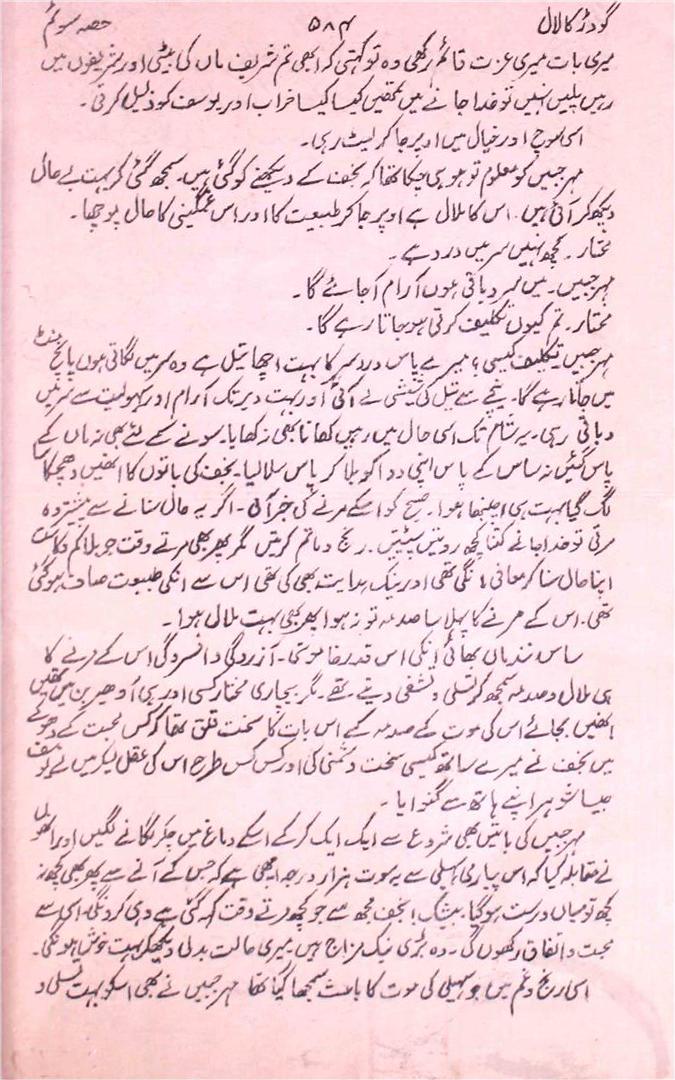 گودڑ کا لال ۵۸۴ حصہ سوئم
میری بات میری عزت قائم رکھی وہ تو کہتی کہ ابھی تم شریف ماں کی بیٹی اور شریفوں میں
رہیں پلیں نہیں تو خدا جانے میں تمھیں کیسا کیسا خراب اور یوسف کو ذلیل کرتی۔
اسی سوچ اور خیال میں اوپر جا کر لیٹ رہی۔
مہر جبیں کو معلوم تو ہو ہی چکا تھا کہ نجف کے دیکھنے کو گئی ہیں۔ سمجھ گئی کہ بہت بے حال
دیکھ کر آئی ہیں۔ اس کا ملال ہے اوپر جا کر طبیعت کا اور اس غمگینی کا حال پوچھا۔
مختار۔ کچھ نہیں سر میں درد ہے۔
مہر جبیں۔ میں سر دباتی ہوں آرام آ جائے گا۔
مختار۔ تم کیوں تکلیف کرتی ہو جاتا رہے گا۔
مہر جبیں۔ تکلیف کیسی؟ میرے پاس درد سر کا بہت اچھا تیل ہے وہ سر میں لگاتی ہوں پانچ منٹ
میں جاتا رہے گا۔ نیچے سے تیل کی شیشی لے آئی اور بہت دیر تک آرام اور سہولیت سے سر میں
دباتی رہی۔ یہ شام تک اسی حال میں رہیں کھانا بھی نہ کھایا۔ سونے کے لئے بھی نہ ماں کے
پاس گئیں نہ ساس کے پاس اپنی ددا کو بلا کر پاس سلا لیا۔ نجف کی باتوں کا انھیں دھچکا سا
لگ گیا بہت ہی اچنبھا ہوا۔ صبح کو اسکے مرنے کی خبر آئی۔ اگر یہ حال سنانے سے پیشتر وہ
مرتی تو خدا جانے کتنا کچھ روتیں پیٹتیں۔ رنج و ماتم کرتیں مگر پھر بھی مرتے وقت جو بلا کم و کاست
اپنا حال سنا کر معافی مانگی تھی اور نیک ہدایت بھی کی تھی اس سے انکی طبیعت صاف ہو گئی
تھی۔ اس کے مرنے کا پہلا سا صدمہ تو نہ ہوا پھر بھی بہت ملال ہوا۔
ساس نندیاں بھائی انکی اس قدر خاموشی۔ آزردگی و افسردگی اس کے مرنے کا
ہی ملال و صدمہ سمجھ کر تسلی و تشفی دیتے تھے۔ مگر بیچاری مختار کسی اور ہی ادھیڑ بن میں تھیں
انھیں بجائے اس کی موت کے صدمہ کے اس بات کا سخت قلق تھا کہ کس محبت کے دھوکے
میں نجف نے میرے ساتھ کیسی سخت دشمنی کی اور کس کس طرح اس کی عقل لیکر میں نے یوسف
جیسا شوہر اپنے ہاتھ سے گنوایا۔
مہر جبیں کی باتیں بھی شروع سے ایک ایک کر کے اسکے دماغ میں چکر لگانے لگیں اور انھوں
نے مقابلہ کیا کہ اس پیاری سہیلی سے یہ سوت ہزار درجہ اچھی ہے کہ جس کے آنے سے پھر بھی کچھ نہ
کچھ تو میاں درست ہو گیا۔ بیشک نجف مجھ سے جو کچھ مرتے وقت کہہ گئی ہے وہی کرونگی۔ اسی سے
محبت و اتفاق رکھوں گی۔ وہ بڑی نیک مزاج ہیں۔ میری حالت بدلی دیکھکر بہت خوش ہونگی۔
اسی رنج و غم میں جو سہیلی کی موت کا باعث سمجھا گیا تھا مہر جبیں نے بھی اسکو بہت تسلی و